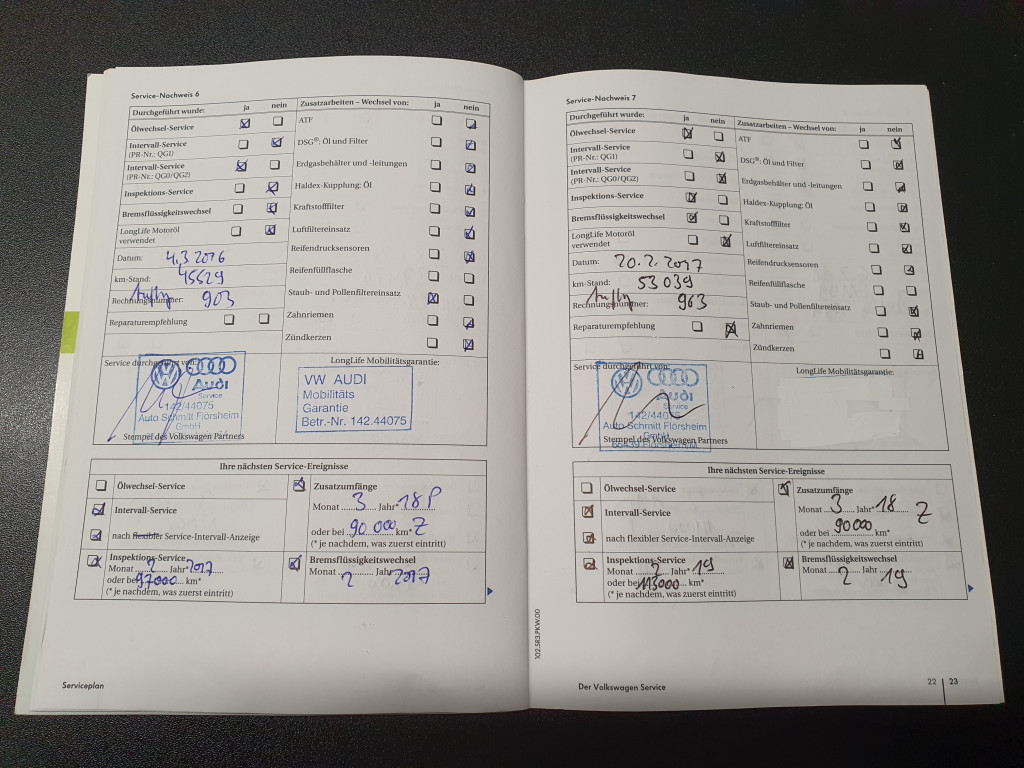 Service-Nachweis 6
Durchgeführt wurde: ja nein Zusatzarbeiten – Wechsel von: ja nein
Ölwechsel-Service
ATF
Intervall-Service
(PR-Nr.: QG1)
DSG®: Öl und Filter
Intervall-Service
(PR-Nr.: QG0/QG2)
Erdgasbehälter und -leitungen
Inspektions-Service
Haldex-Kupplung: Öl
Bremsflüssigkeitswechsel
Kraftstofffilter
LongLife Motoröl
verwendet
Luftfiltereinsatz
Datum: 4.3 2016
Reifendrucksensoren
km-Stand: 45529
Reifenfüllflasche
Rechnungsnummer: 903
Staub- und Pollenfiltereinsatz
Reparaturempfehlung
Zahnriemen
Zündkerzen
Service durchgeführt von:
LongLife Mobilitätsgarantie:
Audi
Service
142/44075
Auto Schmitt Flörsheim
GmbH
Stempel des Volkswagen Partners
VW AUDI
Mobilitäts
Garantie
Betr.-Nr. 142.44075
Ihre nächsten Service-Ereignisse
Ölwechsel-Service
Zusatzumfänge
Monat 3 Jahr* 18 P
Intervall-Service
oder bei 90 000 km* Z
nach flexibler Service-Intervall-Anzeige
(* je nachdem, was zuerst eintritt)
Inspektions-Service
Monat 2 Jahr* 2017
oder bei 97000 km*
(* je nachdem, was zuerst eintritt)
Bremsflüssigkeitswechsel
Monat 2 Jahr 2017
Serviceplan
Service-Nachweis 7
Durchgeführt wurde: ja nein Zusatzarbeiten – Wechsel von: ja nein
Ölwechsel-Service
ATF
Intervall-Service
(PR-Nr.: QG1)
DSG®: Öl und Filter
Intervall-Service
(PR-Nr.: QG0/QG2)
Erdgasbehälter und -leitungen
Inspektions-Service
Haldex-Kupplung: Öl
Bremsflüssigkeitswechsel
Kraftstofffilter
LongLife Motoröl
verwendet
Luftfiltereinsatz
Datum: 20.2.2017
Reifendrucksensoren
km-Stand: 53 039
Reifenfüllflasche
Rechnungsnummer: 963
Staub- und Pollenfiltereinsatz
Reparaturempfehlung
Zahnriemen
Zündkerzen
Service durchgeführt von:
LongLife Mobilitätsgarantie:
Audi
Service
142/44075
Auto Schmitt Flörsheim
GmbH
65439 Flörsheim
Stempel des Volkswagen Partners
Ihre nächsten Service-Ereignisse
Ölwechsel-Service
Zusatzumfänge
Monat 3 Jahr* 18
Intervall-Service
oder bei 90000 km* Z
nach flexibler Service-Intervall-Anzeige
(* je nachdem, was zuerst eintritt)
Inspektions-Service
Monat 2 Jahr* 19
oder bei 113000 km*
(* je nachdem, was zuerst eintritt)
Bremsflüssigkeitswechsel
Monat 2 Jahr 19
102.5R3.PKW.00
Der Volkswagen Service
22 23